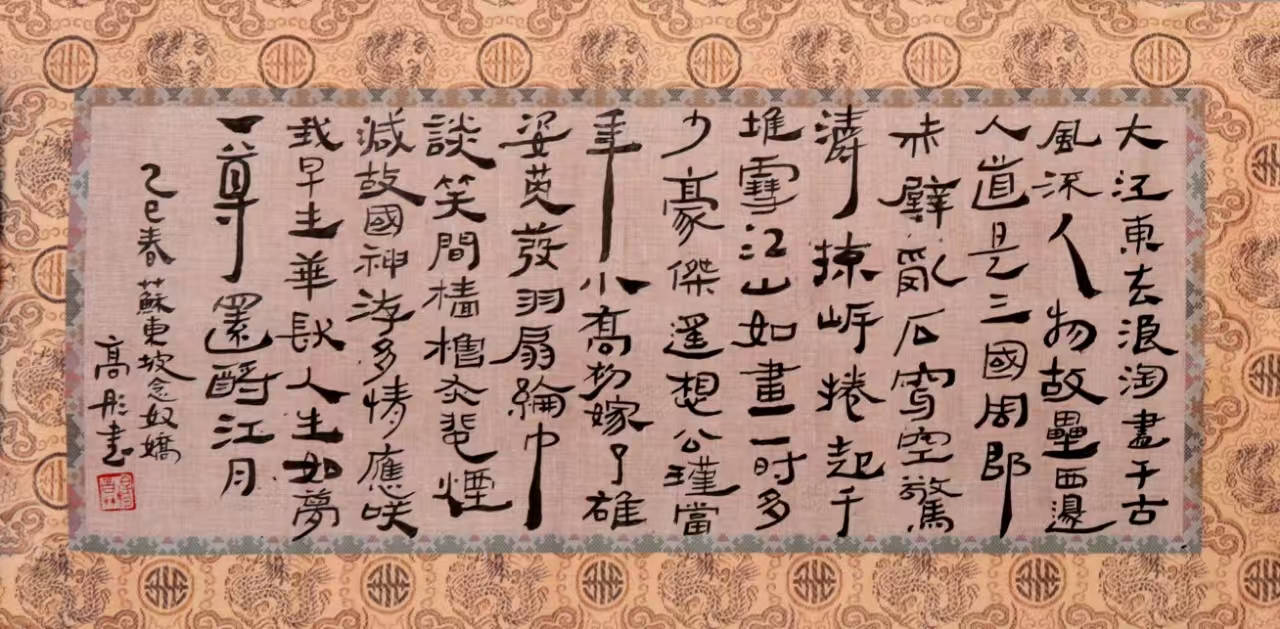 大江東去浪淘盡千古
風流人物故壘西邊
人道是三國周郎
赤壁亂石穿空驚
濤掠岸捲起千
堆雪江山如畫一時多
少豪傑遥想公瑾當
年小喬初嫁了雄
姿英發羽扇綸巾
談笑間檣櫓灰飛煙
滅故國神游多情應咲
我早生華髮人生如夢
一尊還酹江月
乙巳春蘇東坡念奴嬌
高彤書